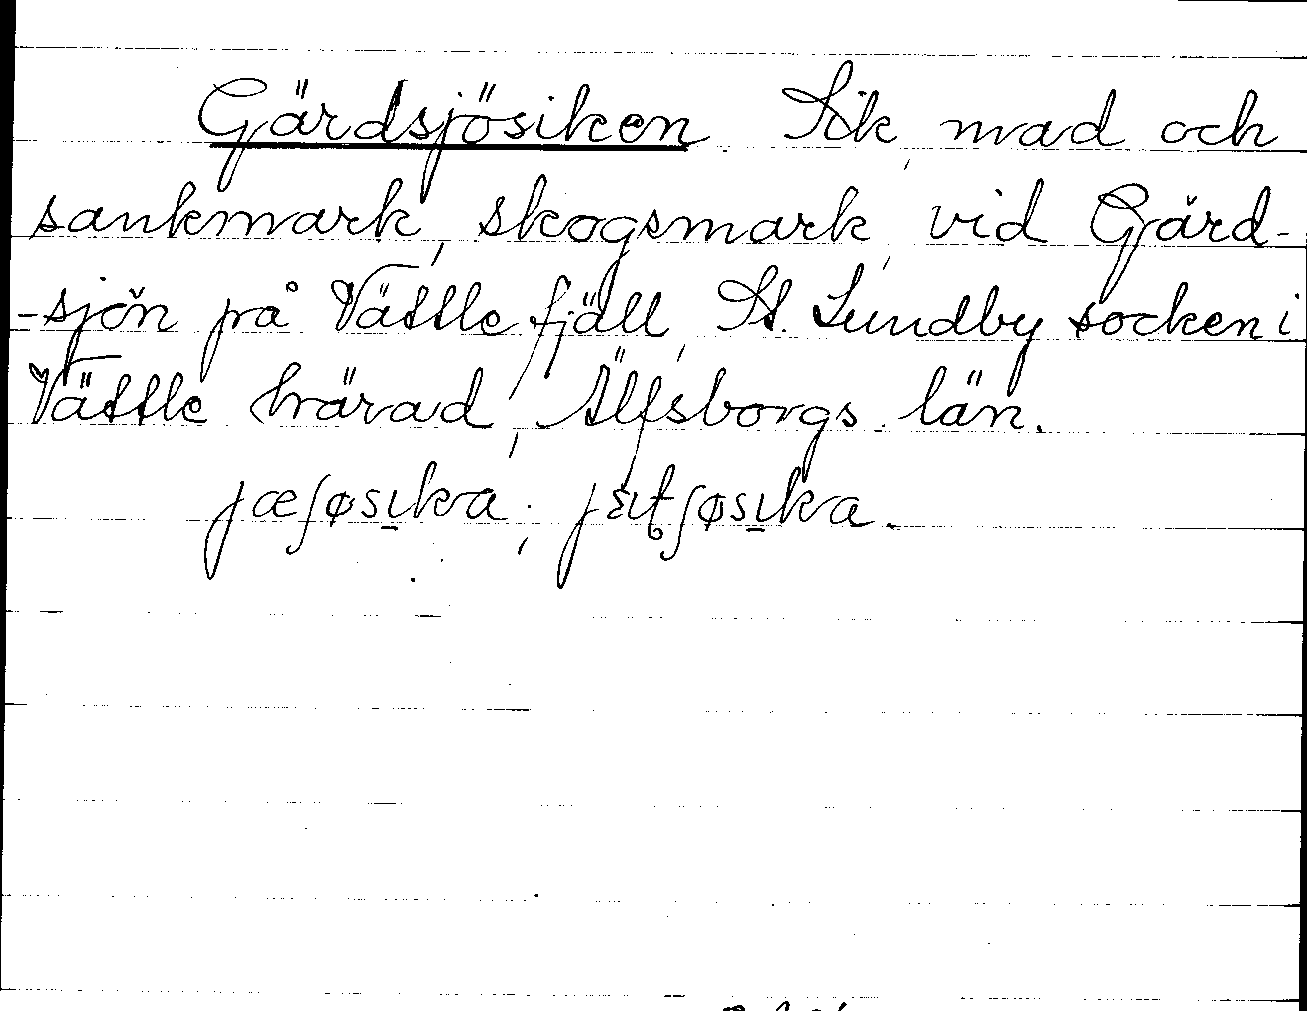 Gärdsjösiken Sik, mad och
sankmark, skogsmark, vid Gärd-
-sjön på Vättle fjäll, St. Lundby socken i
Vättle härad, Älfsborgs län.
jæʃøsıkra;